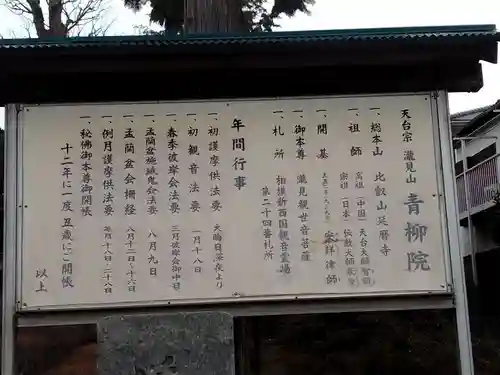 天台宗 瀧見山 青柳院
一、総本山 比叡山 延暦寺
一、祖師 高祖（中国）天台大師智顗
宗祖（日本）伝教大師最澄
一、開基
一、御本尊 瀧見観世音菩薩
一、札所 相模新西国観音霊場
第二十四番札所
年間行事
一、初護摩供法要 大晦日深夜より
一、初観音法要 一月十八日
一、春季彼岸会法要 三月彼岸会御中日
一、盂蘭盆施餓鬼会法要 八月九日
一、盂蘭盆会棚経 八月十二日〜十六日
一、例月護摩供法要 毎月十八日・二十八日
一、秘佛御本尊御開帳
十二年に一度丑歳にご開帳
以上